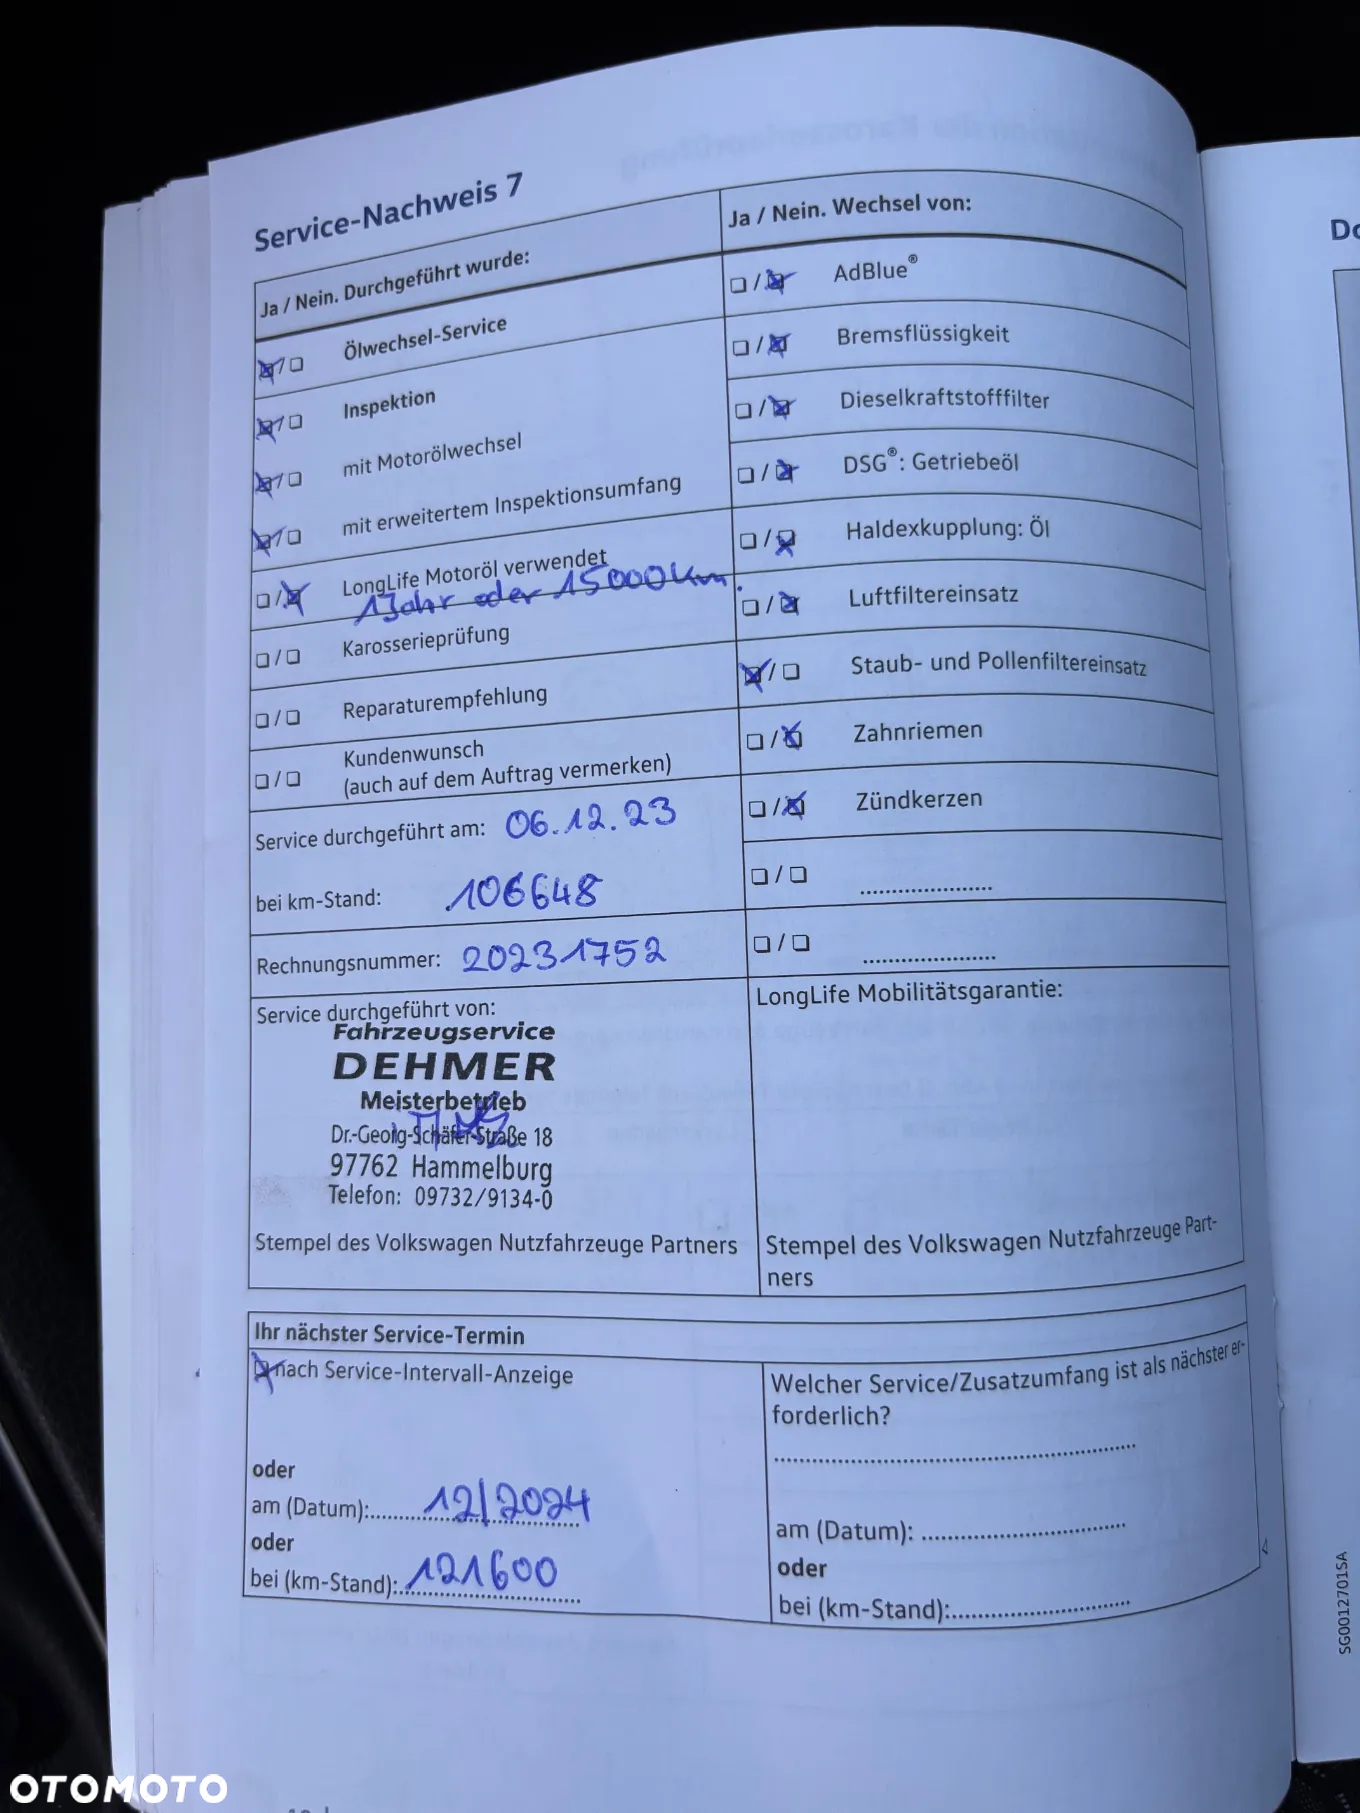 Service-Nachweis 7
Ja / Nein. Durchgeführt wurde:
Ölwechsel-Service
Inspektion
mit Motorölwechsel
mit erweitertem Inspektionsumfang
LongLife Motoröl verwendet
1 Jahr oder 15000 Km.
Karosserieprüfung
Reparaturempfehlung
Kundenwunsch
(auch auf dem Auftrag vermerken)
Service durchgeführt am: 06.12.23
bei km-Stand: 106648
Rechnungsnummer: 20231752
Service durchgeführt von:
Fahrzeugservice
DEHMER
Meisterbetrieb
Dr.-Georg-Schäfer-Straße 18
97762 Hammelburg
Telefon: 09732/9134-0
Stempel des Volkswagen Nutzfahrzeuge Partners
Ja / Nein. Wechsel von:
AdBlue®
Bremsflüssigkeit
Dieselkraftstofffilter
DSG®: Getriebeöl
Haldexkupplung: Öl
Luftfiltereinsatz
Staub- und Pollenfiltereinsatz
Zahnriemen
Zündkerzen
LongLife Mobilitätsgarantie:
Stempel des Volkswagen Nutzfahrzeuge Part-
ners
Ihr nächster Service-Termin
nach Service-Intervall-Anzeige
oder
am (Datum): 12/2024
oder
bei (km-Stand): 121600
Welcher Service/Zusatzumfang ist als nächster er-
forderlich?
am (Datum):
oder
bei (km-Stand):
SG0012701SA
OTOMOTO